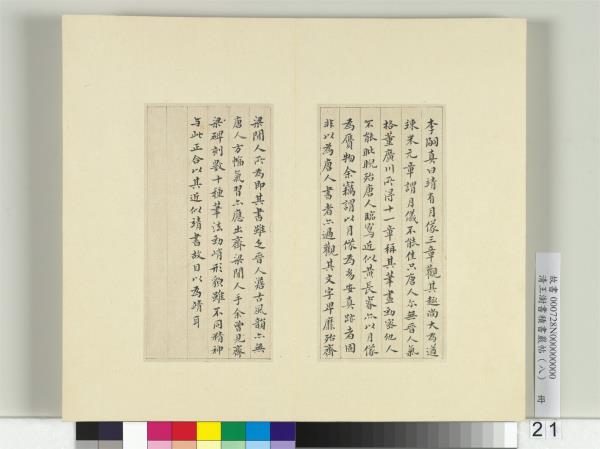 李嗣真曰靖有月儀三章觀其趣尚大為遒
竦米元章謂月儀不能佳只唐人尒無晉人氣
格董廣川所淂十一章稱其筆畫勁密他人
不能睥睨殆唐人臨寫近似黃長睿亦以月儀
為贗物余竊謂以月儀為為安真跡者固
非以為唐人書者亦過觀其文字卑靡殆齊
梁閒人所為即其書雖乏晉人澹古風韻亦無
唐人方幅氣習亦應出齊梁閒人手余嘗見齊
梁碑刻數十種筆法勁峭形貌雖不同精神
与此正合以其近似靖書故目以為靖耳
故書 000728N000000000
清王澍書積書巖帖（八） 冊
21